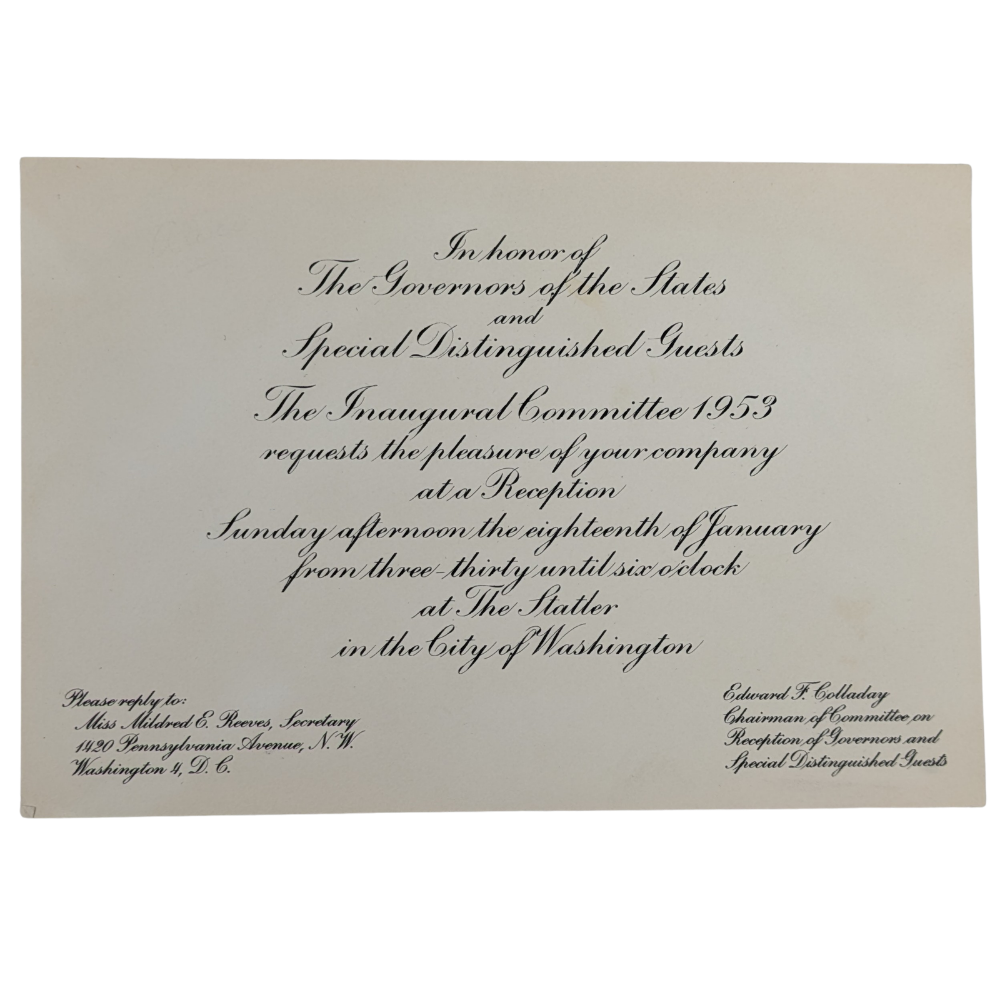 In honor of
The Governors of the States
and
Special Distinguished Guests
The Inaugural Committee 1953
requests the pleasure of your company
at a Reception
Sunday afternoon the eighteenth of January
from three-thirty until six o'clock
at The Statler
in the City of Washington
Please reply to:
Miss Mildred E. Reeves, Secretary
1420 Pennsylvania Avenue, N. W.
Washington 4, D. C.
Edward F. Colladay
Chairman of Committee on
Reception of Governors and
Special Distinguished Guests